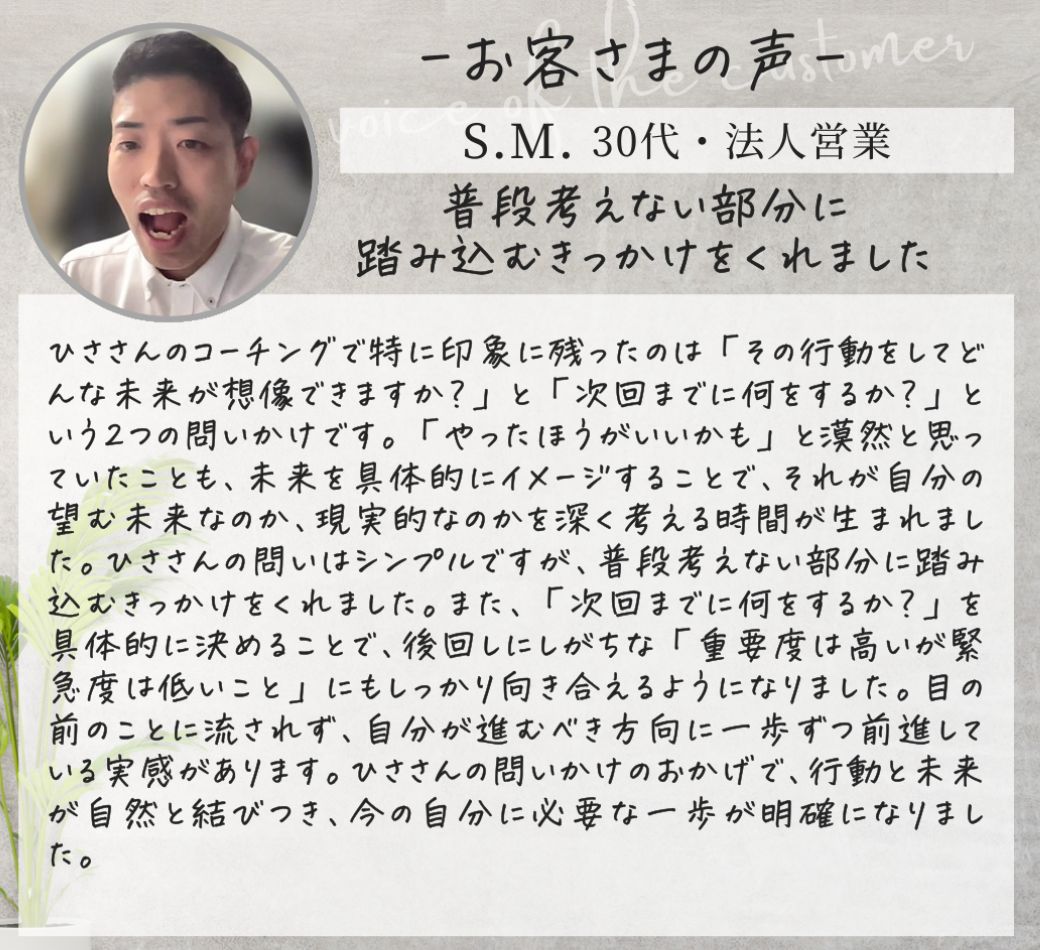 voice of the customer
-お客さまの声-
S.M. 30代・法人営業
普段考えない部分に
踏み込むきっかけをくれました
ひささんのコーチングで特に印象に残ったのは「その行動をしてど
んな未来が想像できますか?」と「次回までに何をするか?」と
いう2つの問いかけです。「やったほうがいいかも」と漠然と思っ
ていたことも、未来を具体的にイメージすることで、それが自分の
望む未来なのか、現実的なのかを深く考える時間が生まれまし
た。ひささんの問いはシンプルですが、普段考えない部分に踏み
込むきっかけをくれました。また、「次回までに何をするか?」を
具体的に決めることで、後回しにしがちな「重要度は高いが緊
急度は低いこと」にもしっかり向き合えるようになりました。目の
前のことに流されず、自分が進むべき方向に一歩ずつ前進して
いる実感があります。ひささんの問いかけのおかげで、行動と未来
が自然と結びつき、今の自分に必要な一歩が明確になりまし
た。